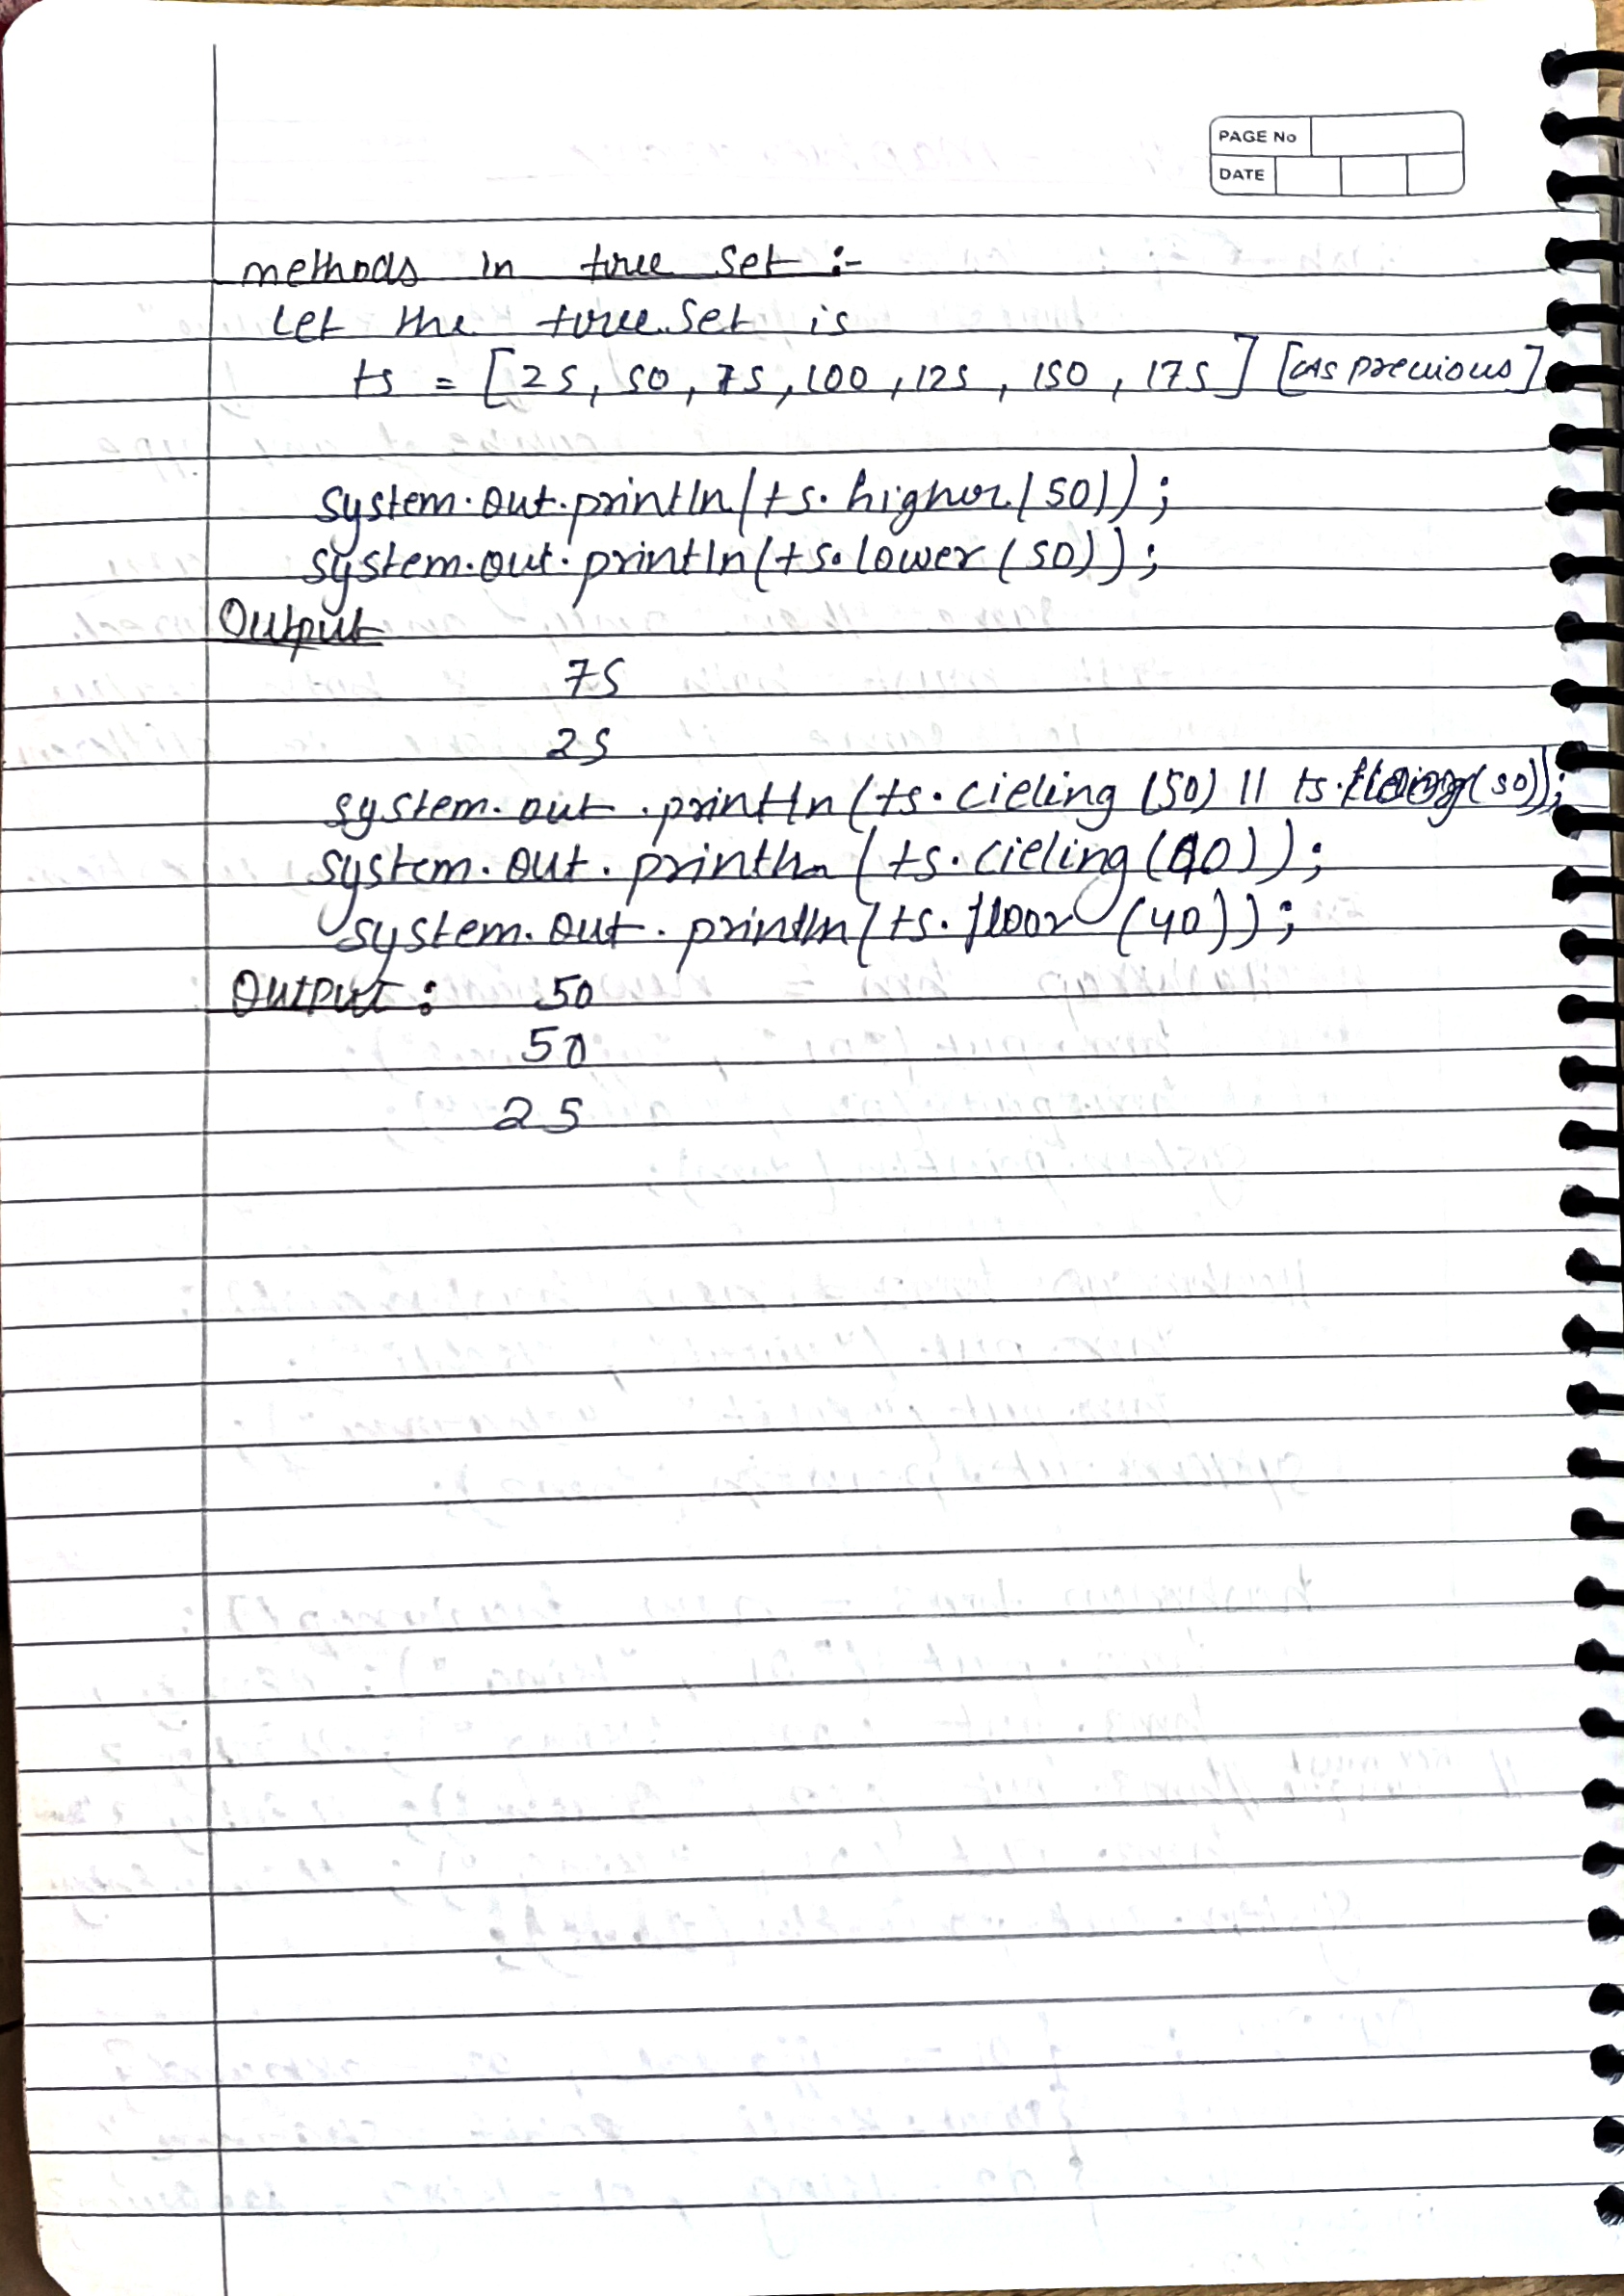 PAGE No
DATE
methods in tree set :-
Let the tree set is
ts = [25, 50, 75, 100, 125, 150, 175] [as previous]
system.out.println(ts.higher(50));
system.out.println(ts.lower(50));
Output
75
25
system.out.println(ts.cieling (50) || ts.(50));
system.out.println(ts.cieling(40));
system.out.println(ts.floor (40));
Output : 50
50
25